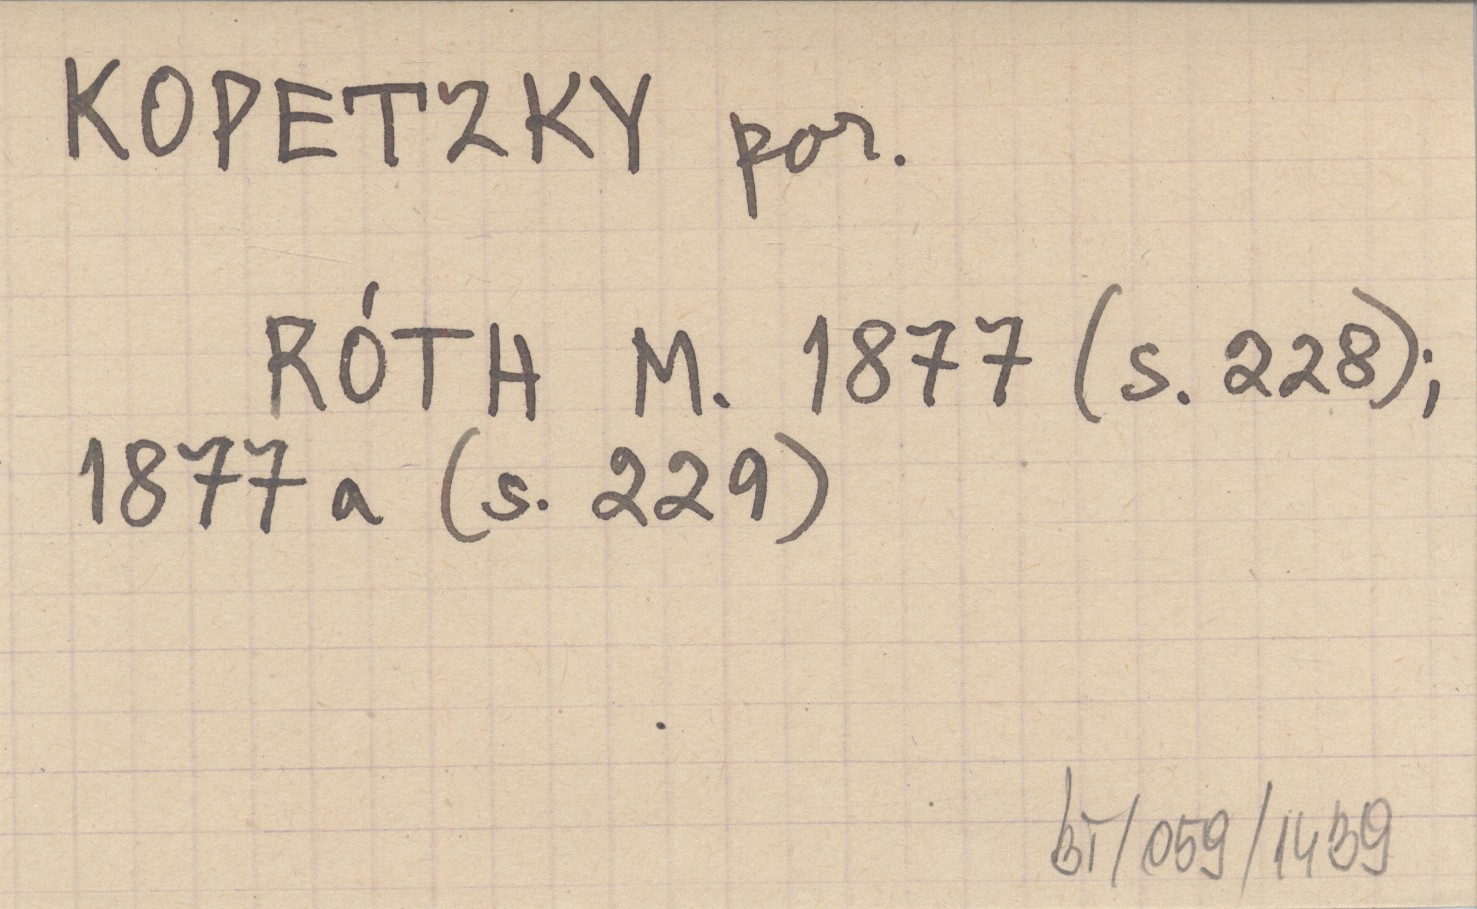 KOPETZKY por.
RÓTH M. 1877 (s. 228);
1877a (s. 229)
bT/059/1439